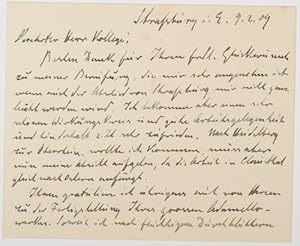 Strassburg i. E. 9.2.09
Verehrter Herr Kollege!
Besten Dank für Ihren frdl. Glückwunsch
zu meiner Berufung, die mir sehr angenehm ist
wenn mir der Abschied von Strassburg mir nicht ganz
leicht werden wird. Ich bekomme aber einen sehr
schönen Wirkungskreis und gute Arbeitsgelegenheit
und bin deshalb sehr zufrieden. Nach Heidelberg
zur Oberrhein. wollte ich kommen, muss aber
nun meine Absicht aufgeben, da die Arbeit in Clausthal
gleich nach Ostern anfängt.
Ihnen gratuliere ich übrigens auch von Herzen
zu der Fertigstellung Ihres grossen Adamello-
werkes. Soweit ich nach flüchtigem Durchblättern